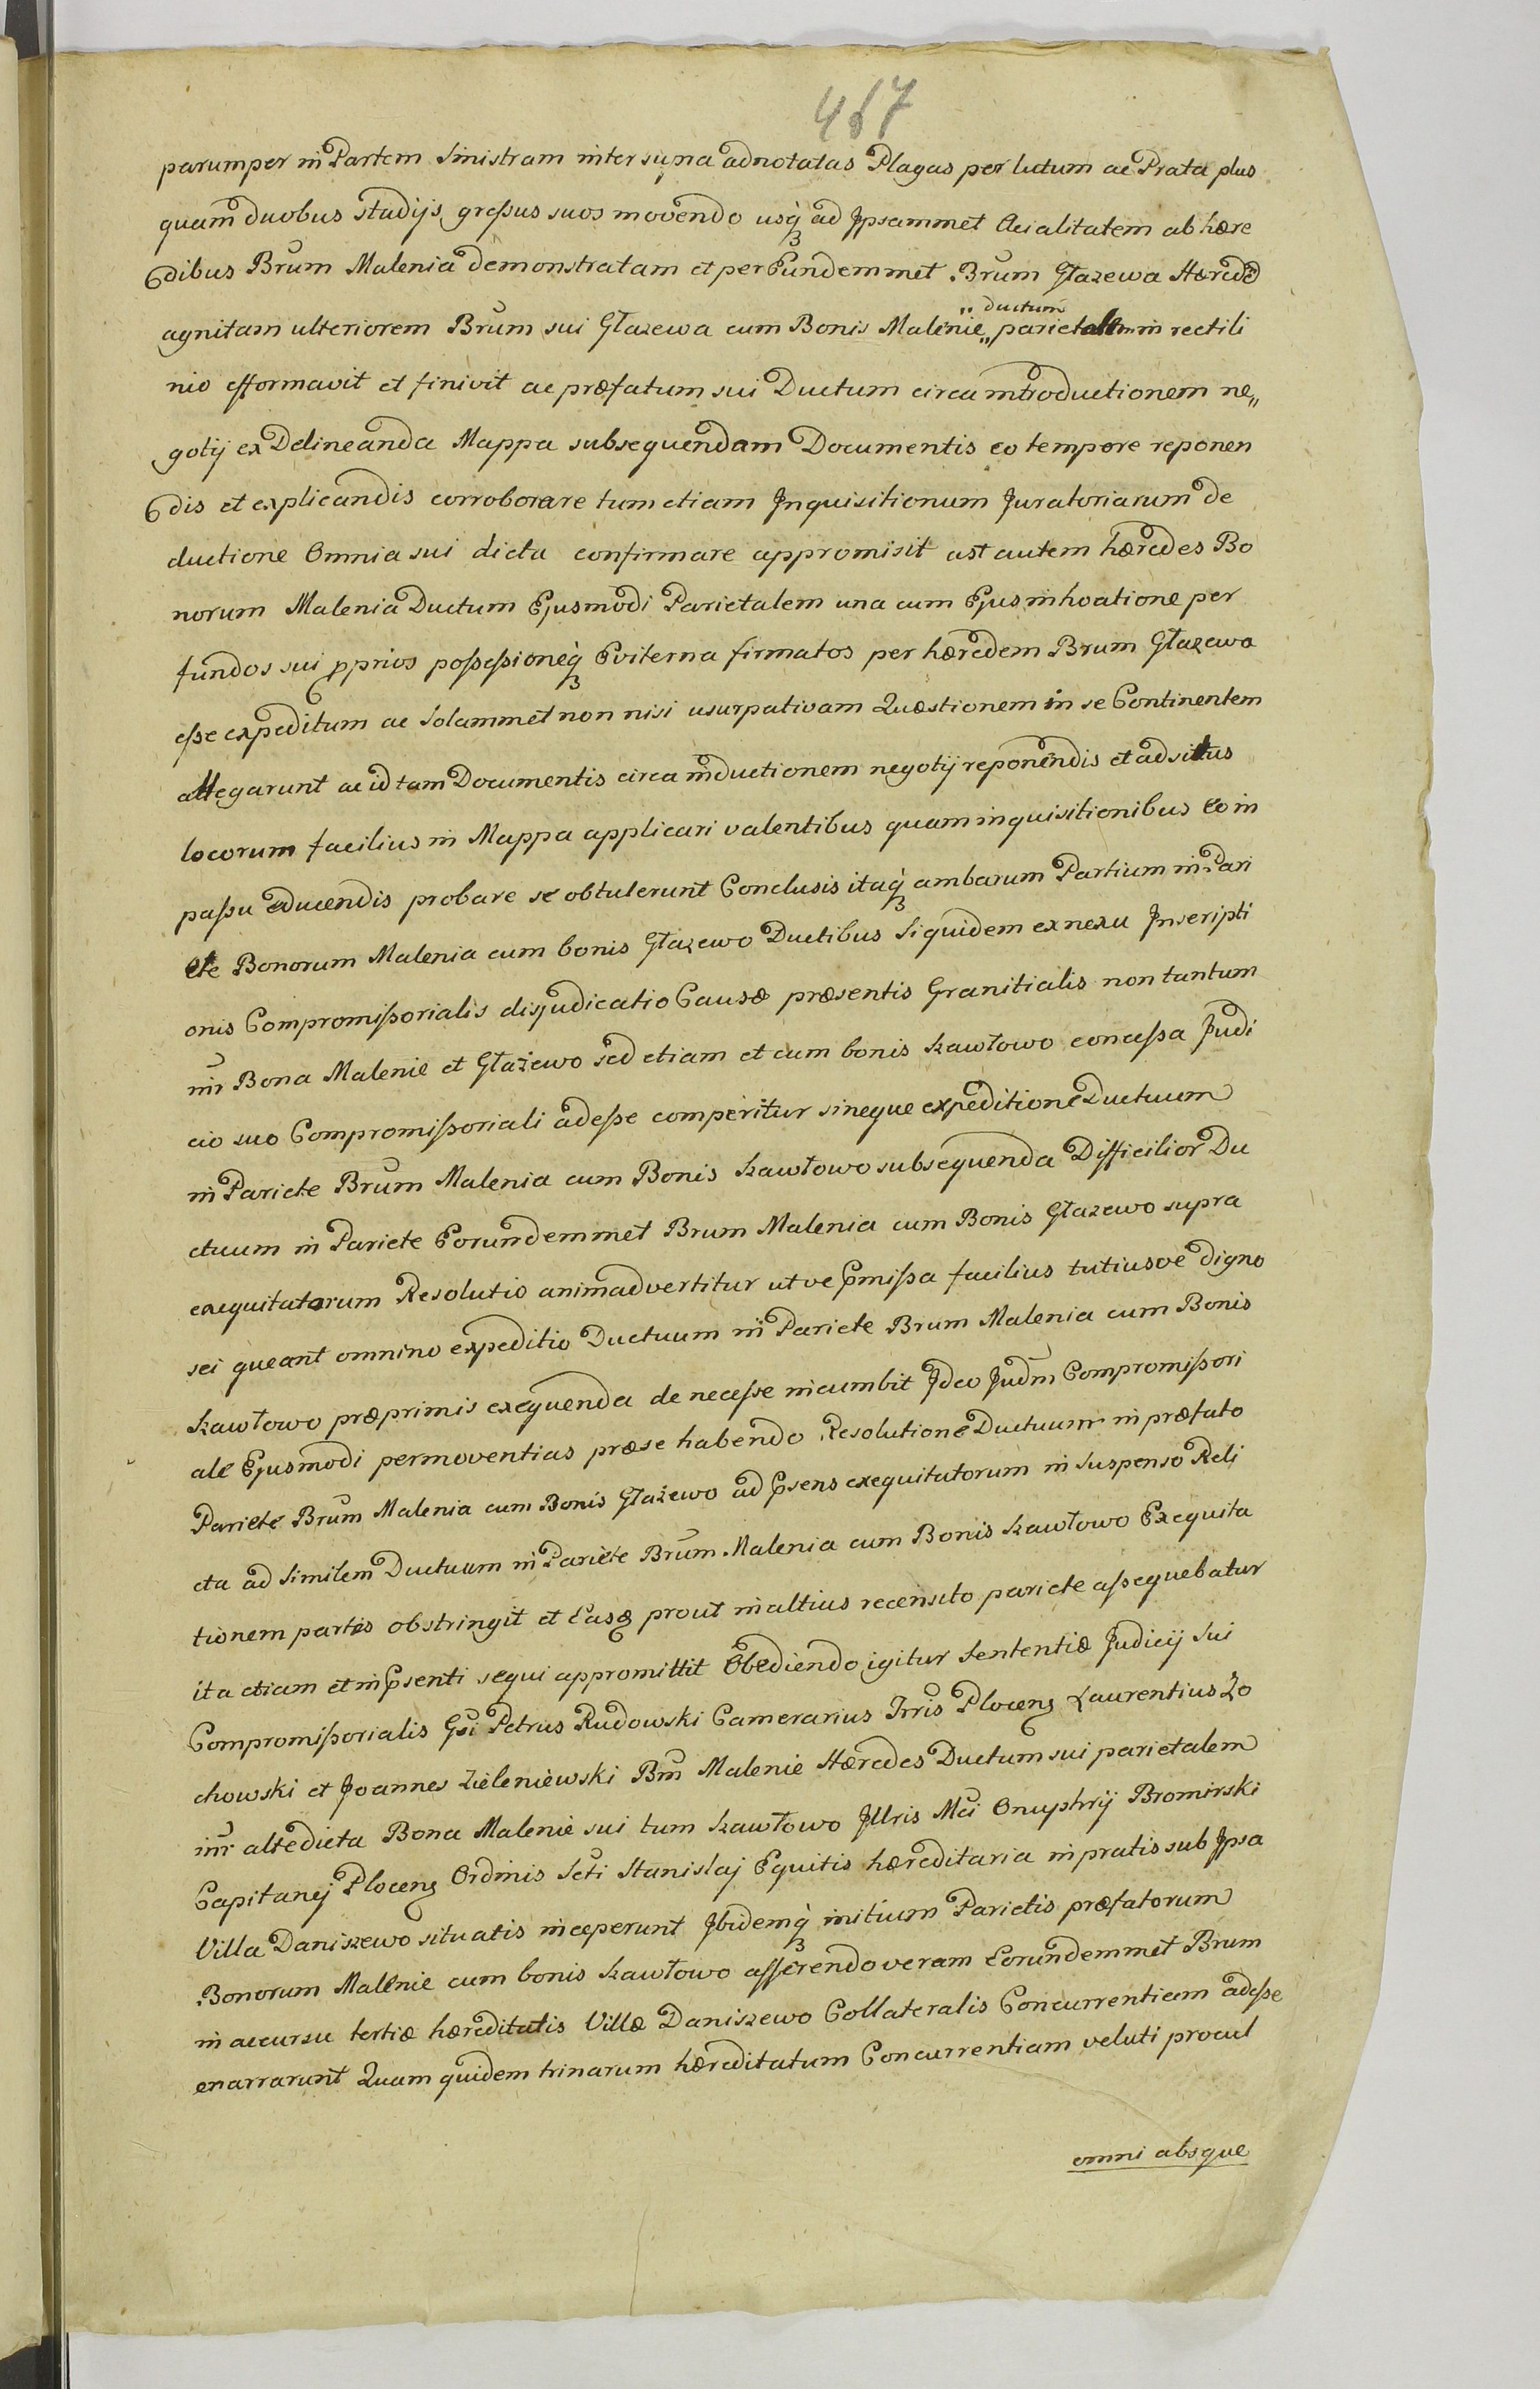 467
parumper in Partem Sinistram inter supra adnotatas Plagas per lutum ac Prata plus
quam duobus stadijs greſsus suos movendo usq̀ ad Jpsammet Acialitatem ab hære
dibus Brum Malenia demonstratam et per Eundemmet Brum Głazewa Hærede
ductum
agnitam ulteriorem Brum sui Głazewa cum Bonis Malenie „ parietalem in rectili
nio efformavit et finivit ac præfatum sui Ductum circa introductionem ne„
gotij ex Delineanda Mappa subsequendam Documentis eo tempore reponen
dis et explicandis corroborare tum etiam Jnquisitionum Juratoriarum de
ductione Omnia sui dicta confirmare appromisit ast autem hæredes Bo
norum Malenia Ductum Ejusmodi Parietalem una cum Ejus inhoatione per
fundos sui pprios poſseſsioneq̀ Eviterna firmatos per hæredem Brum Głazewa
eſse expeditum ac Solammet non nisi usurpativam Quæstionem in se Continentem
allegarunt ac id tam Documentis circa inductionem negotij reponendis et ad situs
locorum facilius in Mappa applicari valentibus quam inquisitionibus Eo in
paſsu educendis probare se obtulerunt Conclusis itaq̀ ambarum Partium in Pari
ete Bonorum Malenia cum bonis Głazewo Ductibus Siquidem ex nexu Jnscripti
onis Compromiſsorialis disjudicatio Causæ præsentis Granitialis non tantum
inr Bona Malenie et Głażewo sed etiam et cum bonis Szawłowo conceſsa Judi
cio suo Compromiſsoriali adeſse comperitur sineque expeditione Ductuum
in Pariete Brum Malenia cum Bonis Szawłowo subsequenda Difficilior Du
ctuum in Pariete Eorundemmet Brum Malenia cum Bonis Głazewo supra
exequitatorum Resolutio animadvertitur ut ve Pmiſsa facilius tutiusve digno
sci queant omnino expeditio Ductuum in Pariete Brum Malenia cum Bonis
Szawłowo præprimis exequenda de neceſse incumbit Jdeo Judm Compromiſsori
ale Ejusmodi permoventias præse habendo Resolutione Ductuum in præfato
Pariete Brum Malenia cum Bonis Głażewo ad Psens exequitatorum in Suspenso Reli
cta ad Similem Ductuum in Pariete Brum Malenia cum Bonis Szawłowo Exequita
tionem partes obstringit et Easq prout in altius recensito pariete aſsequebatur
ita etiam et in Psenti sequi appromittit Obediendo igitur Sententiæ Judicij Sui
Compromiſsorialis Gsi Petrus Rudowski Camerarius Trris Plocens Laurentius Zo
chowski et Joannes Zieleniewski Bm Malenie Hæredes Ductum sui parietalem
inr altedicta Bona Malenie sui tum Szawłowo Jllris Mci Onuphrij Bromirski
Capitanej Plocens Ordinis Scti Stanislaj Equitis hæreditaria in pratis sub Jpsa
Villa Daniszewo situatis inceperunt Jbidemq̀ initium Parietis præfatorum
Bonorum Malenie cum bonis Szawłowo aſserendo veram Eorundemmet Brum
in accursu tertiæ hæreditatis Villæ Daniszewo Collateralis Concurrentiam adeſse
enarrarunt Quam quidem trinarum hæreditatum Concurrentiam veluti procul
omni absque